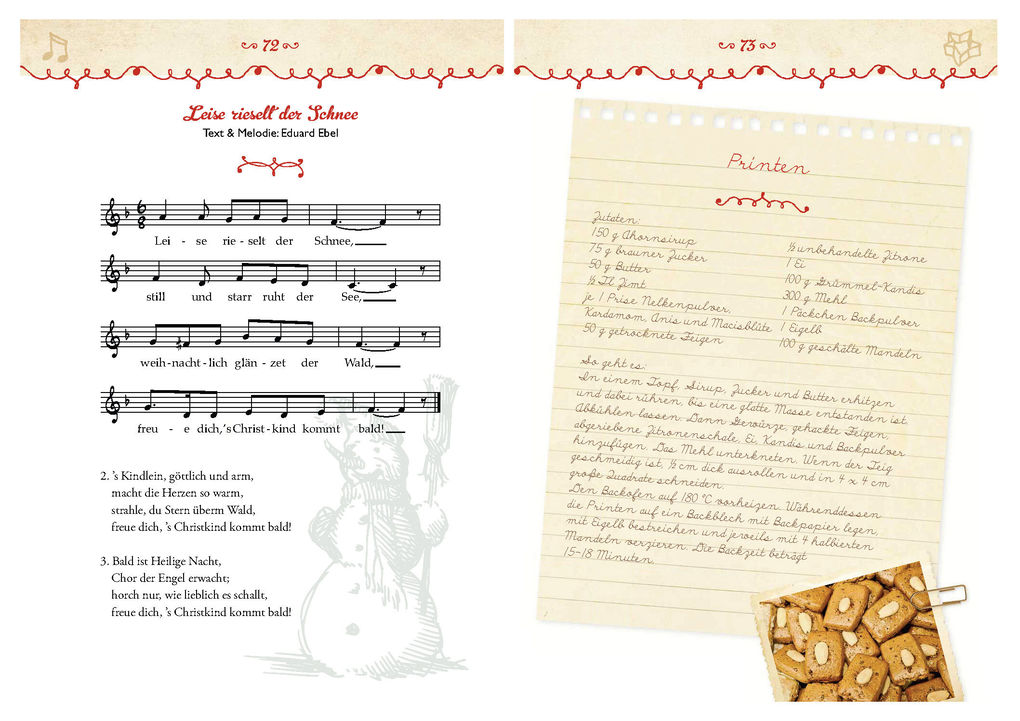 72
Leise rieselt der Schnee
Text & Melodie: Eduard Ebel
6
8
Lei - se rie - selt der Schnee,
still und starr ruht der See,
weih - nacht - lich glän - zet der Wald,
freu - e dich, 's Christ - kind kommt bald!
2. 's Kindlein, göttlich und arm,
macht die Herzen so warm,
strahle, du Stern überm Wald,
freue dich, 's Christkind kommt bald!
3. Bald ist Heilige Nacht,
Chor der Engel erwacht;
horch nur, wie lieblich es schallt,
freue dich, 's Christkind kommt bald!
73
Printen
Zutaten:
150 g Ahornsirup
75 g brauner Zucker
50 g Butter
½ Tl Zimt
je 1 Prise Nelkenpulver,
Kardamom, Anis und Macisblüte
50 g getrocknete Feigen
½ unbehandelte Zitrone
1 Ei
100 g Grümmel-Kandis
300 g Mehl
1 Päckchen Backpulver
1 Eigelb
100 g geschälte Mandeln
So geht es:
In einem Topf, Sirup, Zucker und Butter erhitzen
und dabei rühren, bis eine glatte Masse entstanden ist.
Abkühlen lassen. Dann Gewürze, gehackte Feigen,
abgeriebene Zitronenschale, Ei, Kandis und Backpulver
hinzufügen. Das Mehl unterkneten. Wenn der Teig
geschmeidig ist, ½ cm dick ausrollen und in 4 x 4 cm
große Quadrate schneiden.
Den Backofen auf 180 °C vorheizen. Währenddessen
die Printen auf ein Backblech mit Backpapier legen,
mit Eigelb bestreichen und jeweils mit 4 halbierten
Mandeln verzieren. Die Backzeit beträgt
15-18 Minuten.